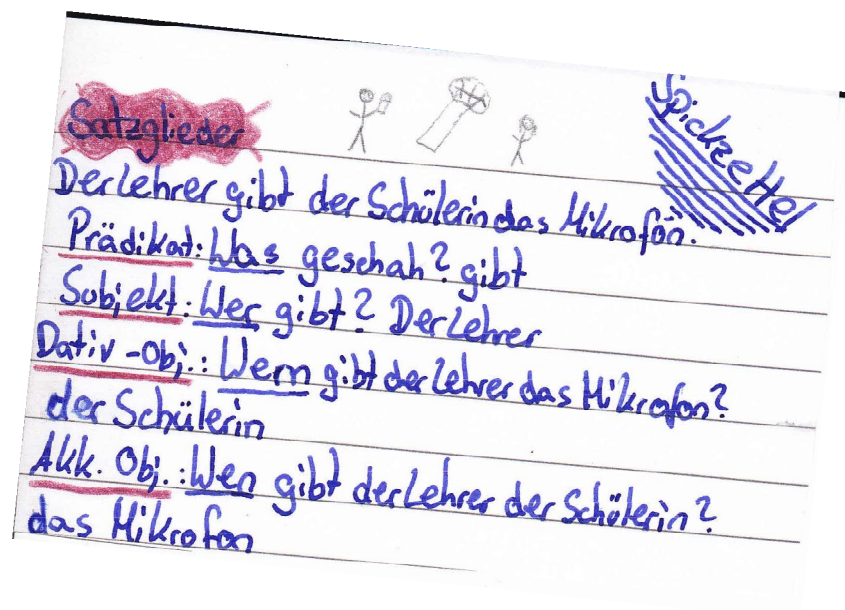 Satzglieder
Spickzettel
Der Lehrer gibt der Schülerin das Mikrofon.
Prädikat: Was geschah? gibt
Subjekt: Wer gibt? Der Lehrer
Dativ-Obj.: Wem gibt der Lehrer das Mikrofon?
der Schülerin
Akk. Obj.: Wen gibt der Lehrer der Schülerin?
das Mikrofon